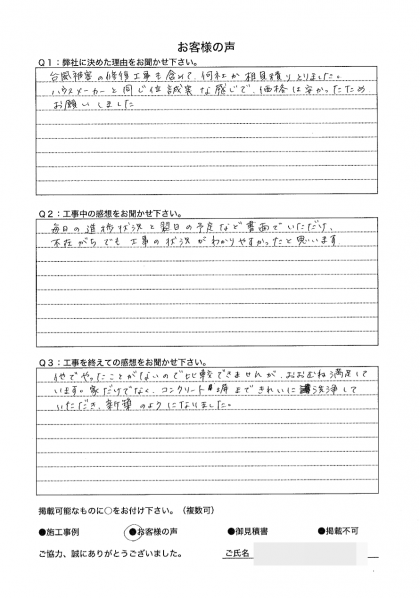 お客様の声
Q1：弊社に決めた理由をお聞かせ下さい。
台風被害の修復工事も含めて、何社か相見積りとりました。
ハウスメーカーと同じ位誠実な感じで、価格は安かったため
お願いしました
Q2：工事中の感想をお聞かせ下さい。
毎日の進捗状況と翌日の予定など書面でいただけ、
不在がちでも工事の状況がわかりやすかったと思います
Q3：工事を終えての感想をお聞かせ下さい。
他でやったことがないので比較できませんが、おおむね満足して
います。家だけでなく、コンクリート塀まできれいに洗浄して
いただき、新築のようになりました。
掲載可能なものに○をお付け下さい。（複数可）
●施工事例 ●お客様の声 ●御見積書 ●掲載不可
ご協力、誠にありがとうございました。 ご氏名